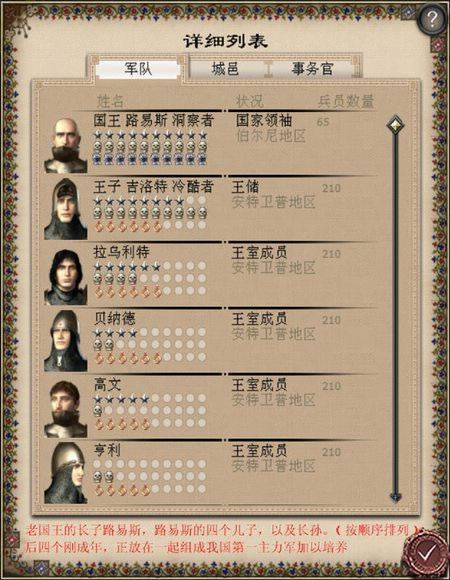 详细列表
?
军队 城邑 事务官
姓名 状况 兵员数量
国王 路易斯 洞察者 国家领袖 65
伯尔尼地区
王子 吉洛特 冷酷者 王储 210
安特卫普地区
拉乌利特 王室成员 210
安特卫普地区
贝纳德 王室成员 210
安特卫普地区
高文 王室成员 210
安特卫普地区
亨利 王室成员 210
安特卫普地区
老国王的长子路易斯，路易斯的四个儿子，以及长孙。（按顺序排列）
后四个刚成年，正放在一起组成我国第一主力军加以培养